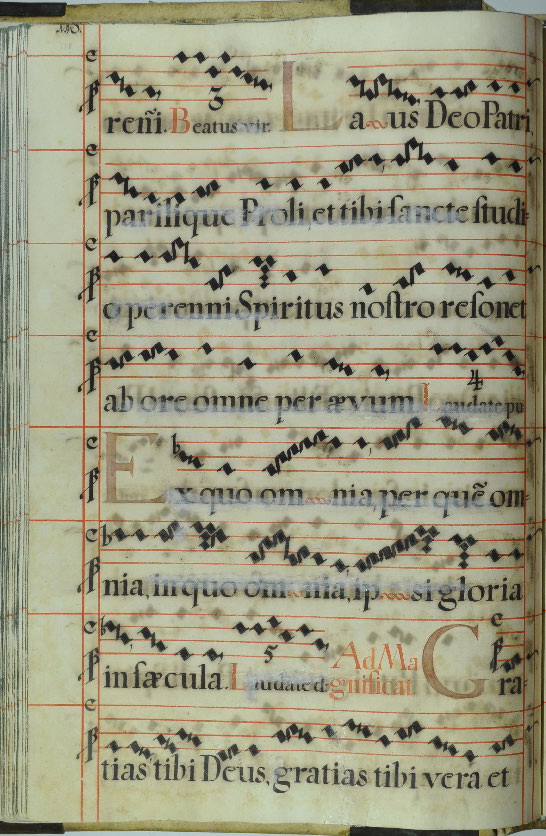 reñi. Beatus vir. 3 La us Deo Patri
parilique Proli, et tibi sancte studi-
o perenni Spiritus nostro resonet
ab ore omne per ævum. Laudate pu 4
Ex quo om nia, per quẽ om-
nia, in quo om nia, ip si gloria
in sæcula. Laudate d. 5 Ad Magnificat. Gra-
tias tibi Deus, gratias tibi vera et